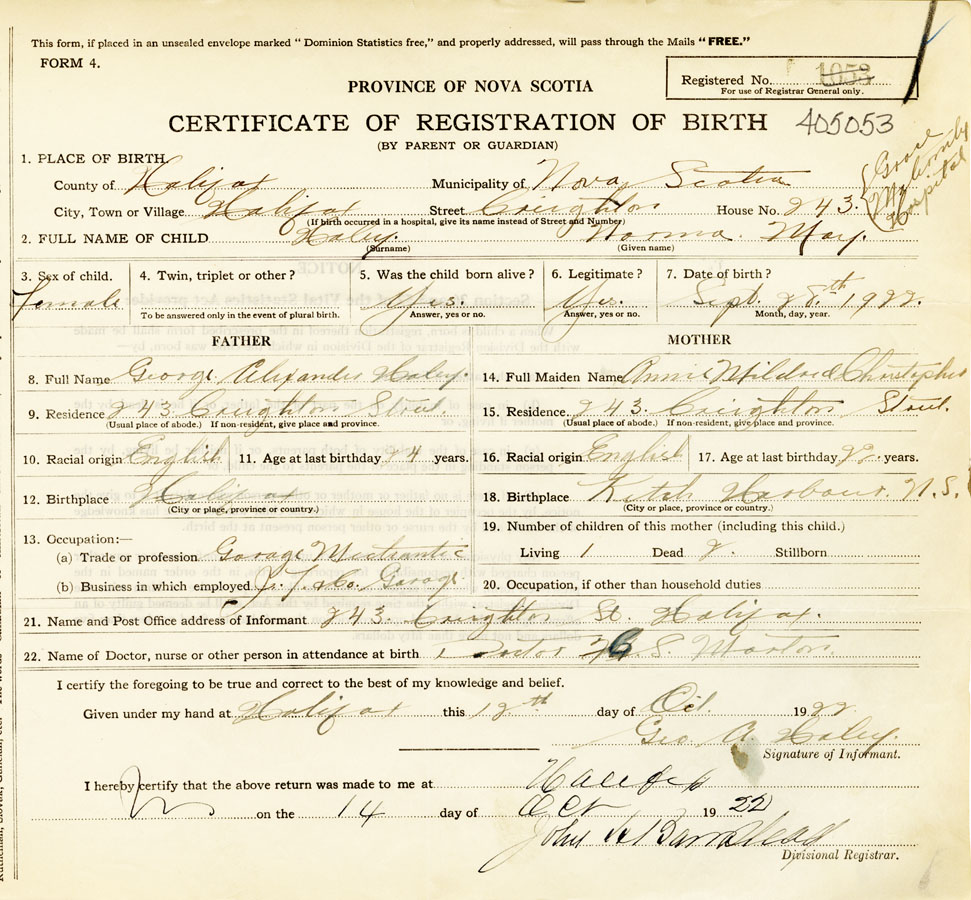 This form, if placed in an unsealed envelope marked "Dominion Statistics free," and properly addressed, will pass through the Mails "FREE."
FORM 4.
Registered No. 1053
For use of Registrar General only.
PROVINCE OF NOVA SCOTIA
CERTIFICATE OF REGISTRATION OF BIRTH 405053
(BY PARENT OR GUARDIAN)
Grace Maternity Hospital
1. PLACE OF BIRTH
County of Halifax Municipality of Nova Scotia
City, Town or Village Halifax Street Creighton House No. 243.
(If birth occurred in a hospital, give its name instead of Street and Number)
2. FULL NAME OF CHILD Haley. Norma May.
(Surname) (Given name)
3. Sex of child. 4. Twin, triplet or other? 5. Was the child born alive? 6. Legitimate? 7. Date of birth?
Female Yes. Yes. Sept. 28th 1922.
To be answered only in the event of plural birth. Answer, yes or no. Answer, yes or no. Month, day, year.
FATHER
8. Full Name George Alexander Haley.
9. Residence 243 Creighton Street.
(Usual place of abode.) If non-resident, give place and province.
10. Racial origin English 11. Age at last birthday 24 years.
12. Birthplace Halifax
(City or place, province or country.)
13. Occupation:—
(a) Trade or profession Garage Mechantic
(b) Business in which employed Garage
MOTHER
14. Full Maiden Name Annie Mildred Christopher
15. Residence. 243. Creighton Street.
(Usual place of abode.) If non-resident, give place and province.
16. Racial origin English 17. Age at last birthday 22 years.
18. Birthplace Ketch Harbour. N.S.
(City or place, province or country.)
19. Number of children of this mother (including this child.)
Living 1 Dead 2. Stillborn
20. Occupation, if other than household duties
21. Name and Post Office address of Informant 243 Creighton St. Halifax.
22. Name of Doctor, nurse or other person in attendance at birth Doctor S. Morton.
I certify the foregoing to be true and correct to the best of my knowledge and belief.
Given under my hand at Halifax this 12th day of Oct. 1922
Geo. A. Haley.
Signature of Informant.
I hereby certify that the above return was made to me at Halifax
on the 14 day of Oct 1922
John H Barnstead
Divisional Registrar.